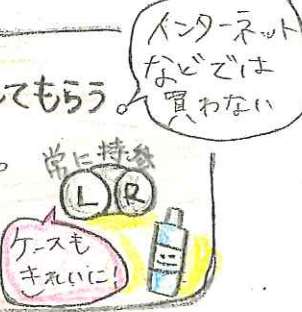 インターネット
などでは
買わない
してもらう。
常に持参
L R
ケースも
きれいに!